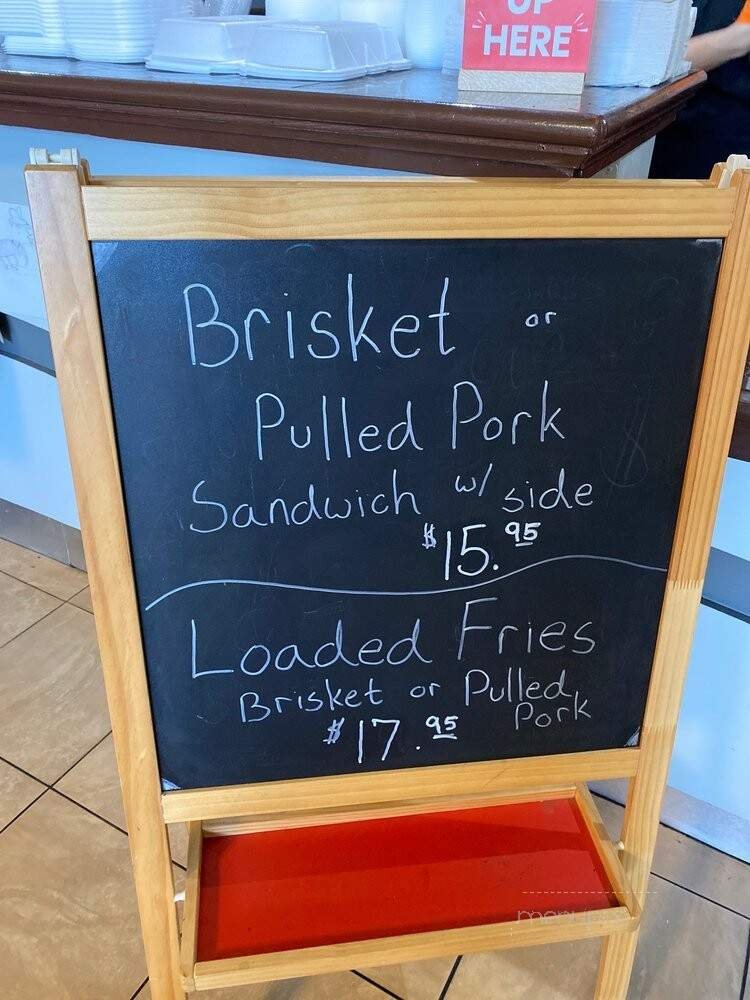 UP
HERE
Brisket or
Pulled Pork
Sandwich w/ side
$15.95
Loaded Fries
Brisket or Pulled
Pork
$17.95